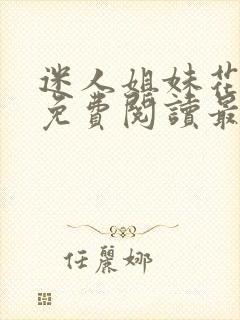 迷人姐妹花
免費閱讀最
任麗娜